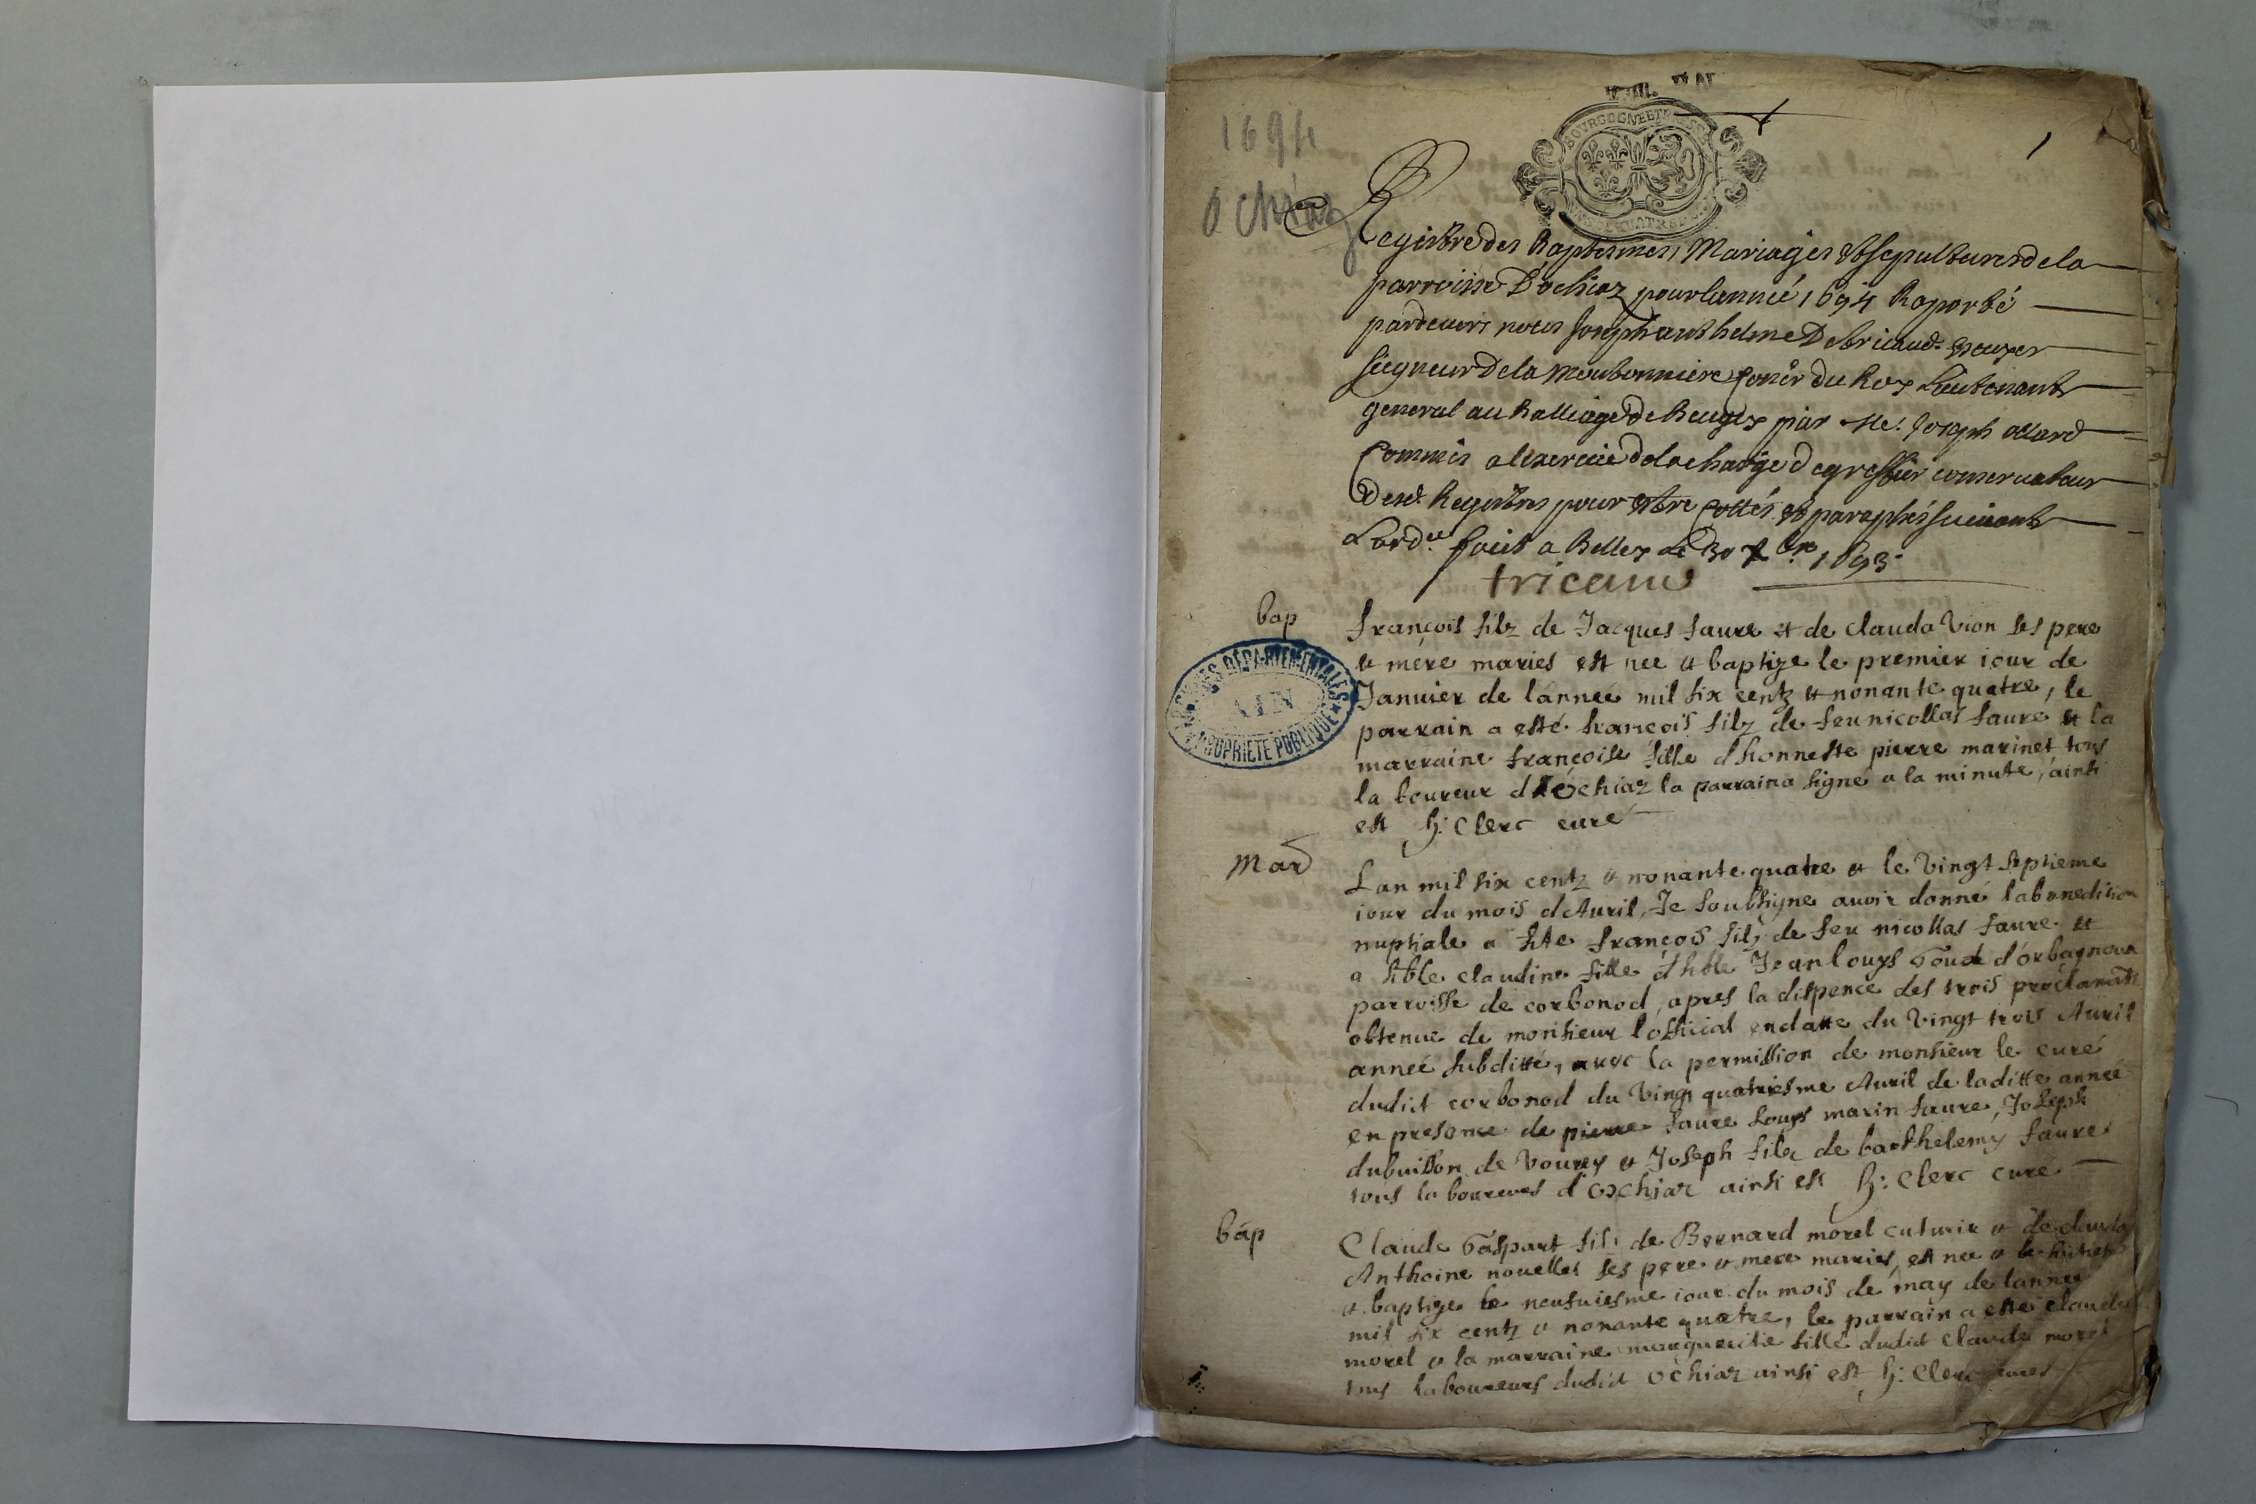 1694
Ochiaz
BOURGOGNE ET BRESSE
1
Registre des Baptesmes, Mariages et sepultures de la
parroisse D'ochiaz pour lannee 1694 Raporté
pardevers nous Joseph anthelme De tricaud escuyer
seigneur De la Moubonniere Coner du Roy Lieutenant
general au Balliage de Beugey par Me. Joseph
Commis a lexercice de la charge de greffier conservateur
Desd. Registres pour estre Cottés et paraphés suivant
Lord.ce faict a Belley le 30 Xbre 1693
tricaud
bap
françois filz de Jacques faure et de clauda Vion ses pere
et mere maries est nee et baptize le premier iour de
Januier de lánneé mil six centz et nonante quatre, le
parrain a esté françois filz de feu nicollas faure et la
marraine françoise fille d'honneste pierre marinet tous
la boureur d ochiaz la parrain a signé a la minute, ainsi
est h: Clerc curé
ARCHIVES DÉPARTEMENTALES
AIN
PROPRIÉTÉ PUBLIQUE
Mar
Lan mil six centz et nonante quatre et le Vingt septieme
iour du mois d'Auril, Je soubsigne auoir donné la benedition
nuptiale a hte françois filz de feu nicollas faure et
a hble claudine fille d'hble Jean louys d'orbagnoux
parroisse de corbonod, apres la dispence des trois proclama
obtenue de monsieur lofficial en datte du Vingt trois Auril
anneé subditté, auec la permission de monsieur le curé
dudict corbonod du Vingt quatriesme Auril de laditte anneé
en presence de pierre faure Louys marin faure, Joseph
dubuisson de Vouvey et Joseph filz de barthelemy faure
tous laboureurs d'ochiaz ainsi est h: Clerc curé
báp
Claude Gáspart filz de Bernard morel cuturie et de clauda
Anthoine nouellet ses pere et mere maries, est nee le huictie
et baptize le neufuiesme iour du mois de may de lannee
mil six centz et nonante quatre, le parrain a esté claude
morel et la marraine marguerite fille dudict claude morel
tous laboureurs dudict ochiaz ainsi est h: Clerc curé